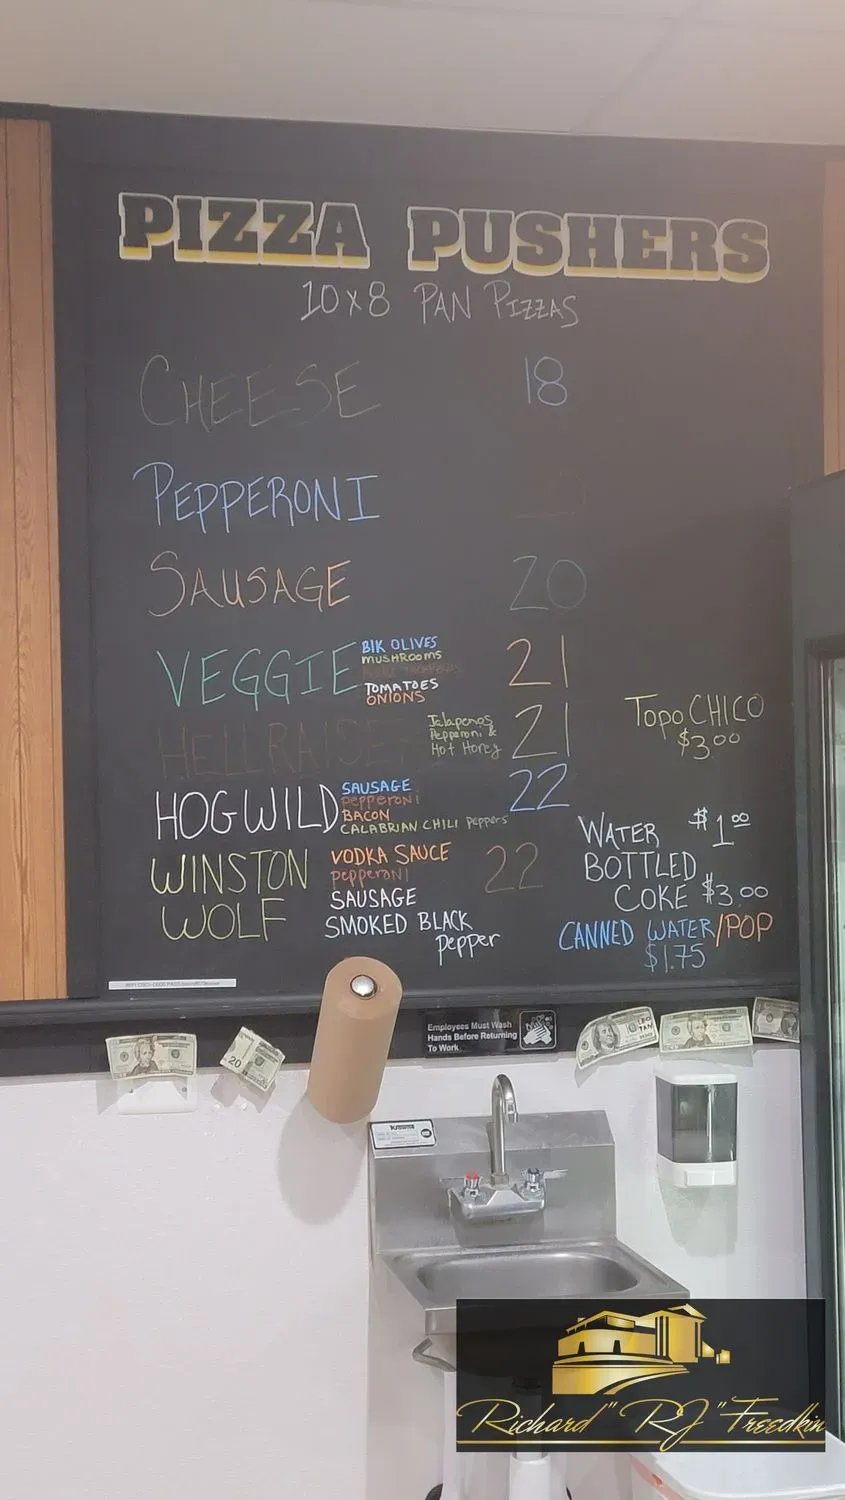 PIZZA PUSHERS
10x8 PAN PIZZAS
CHEESE 18
PEPPERONI
SAUSAGE 20
VEGGIE 21
BLK OLIVES
MUSHROOMS
TOMATOES
ONIONS
HELLRAISER 21
Jalapenos
Pepperoni &
Hot Honey
HOGWILD 22
SAUSAGE
pepperoni
BACON
CALABRIAN CHILI Peppers
WINSTON WOLF 22
VODKA SAUCE
pepperoni
SAUSAGE
SMOKED BLACK
pepper
TOPO CHICO
$3.00
WATER $1.00
BOTTLED
COKE $3.00
CANNED WATER/POP
$1.75
Employees Must Wash
Hands Before Returning
To Work
20
Richard "RJ" Freedkin